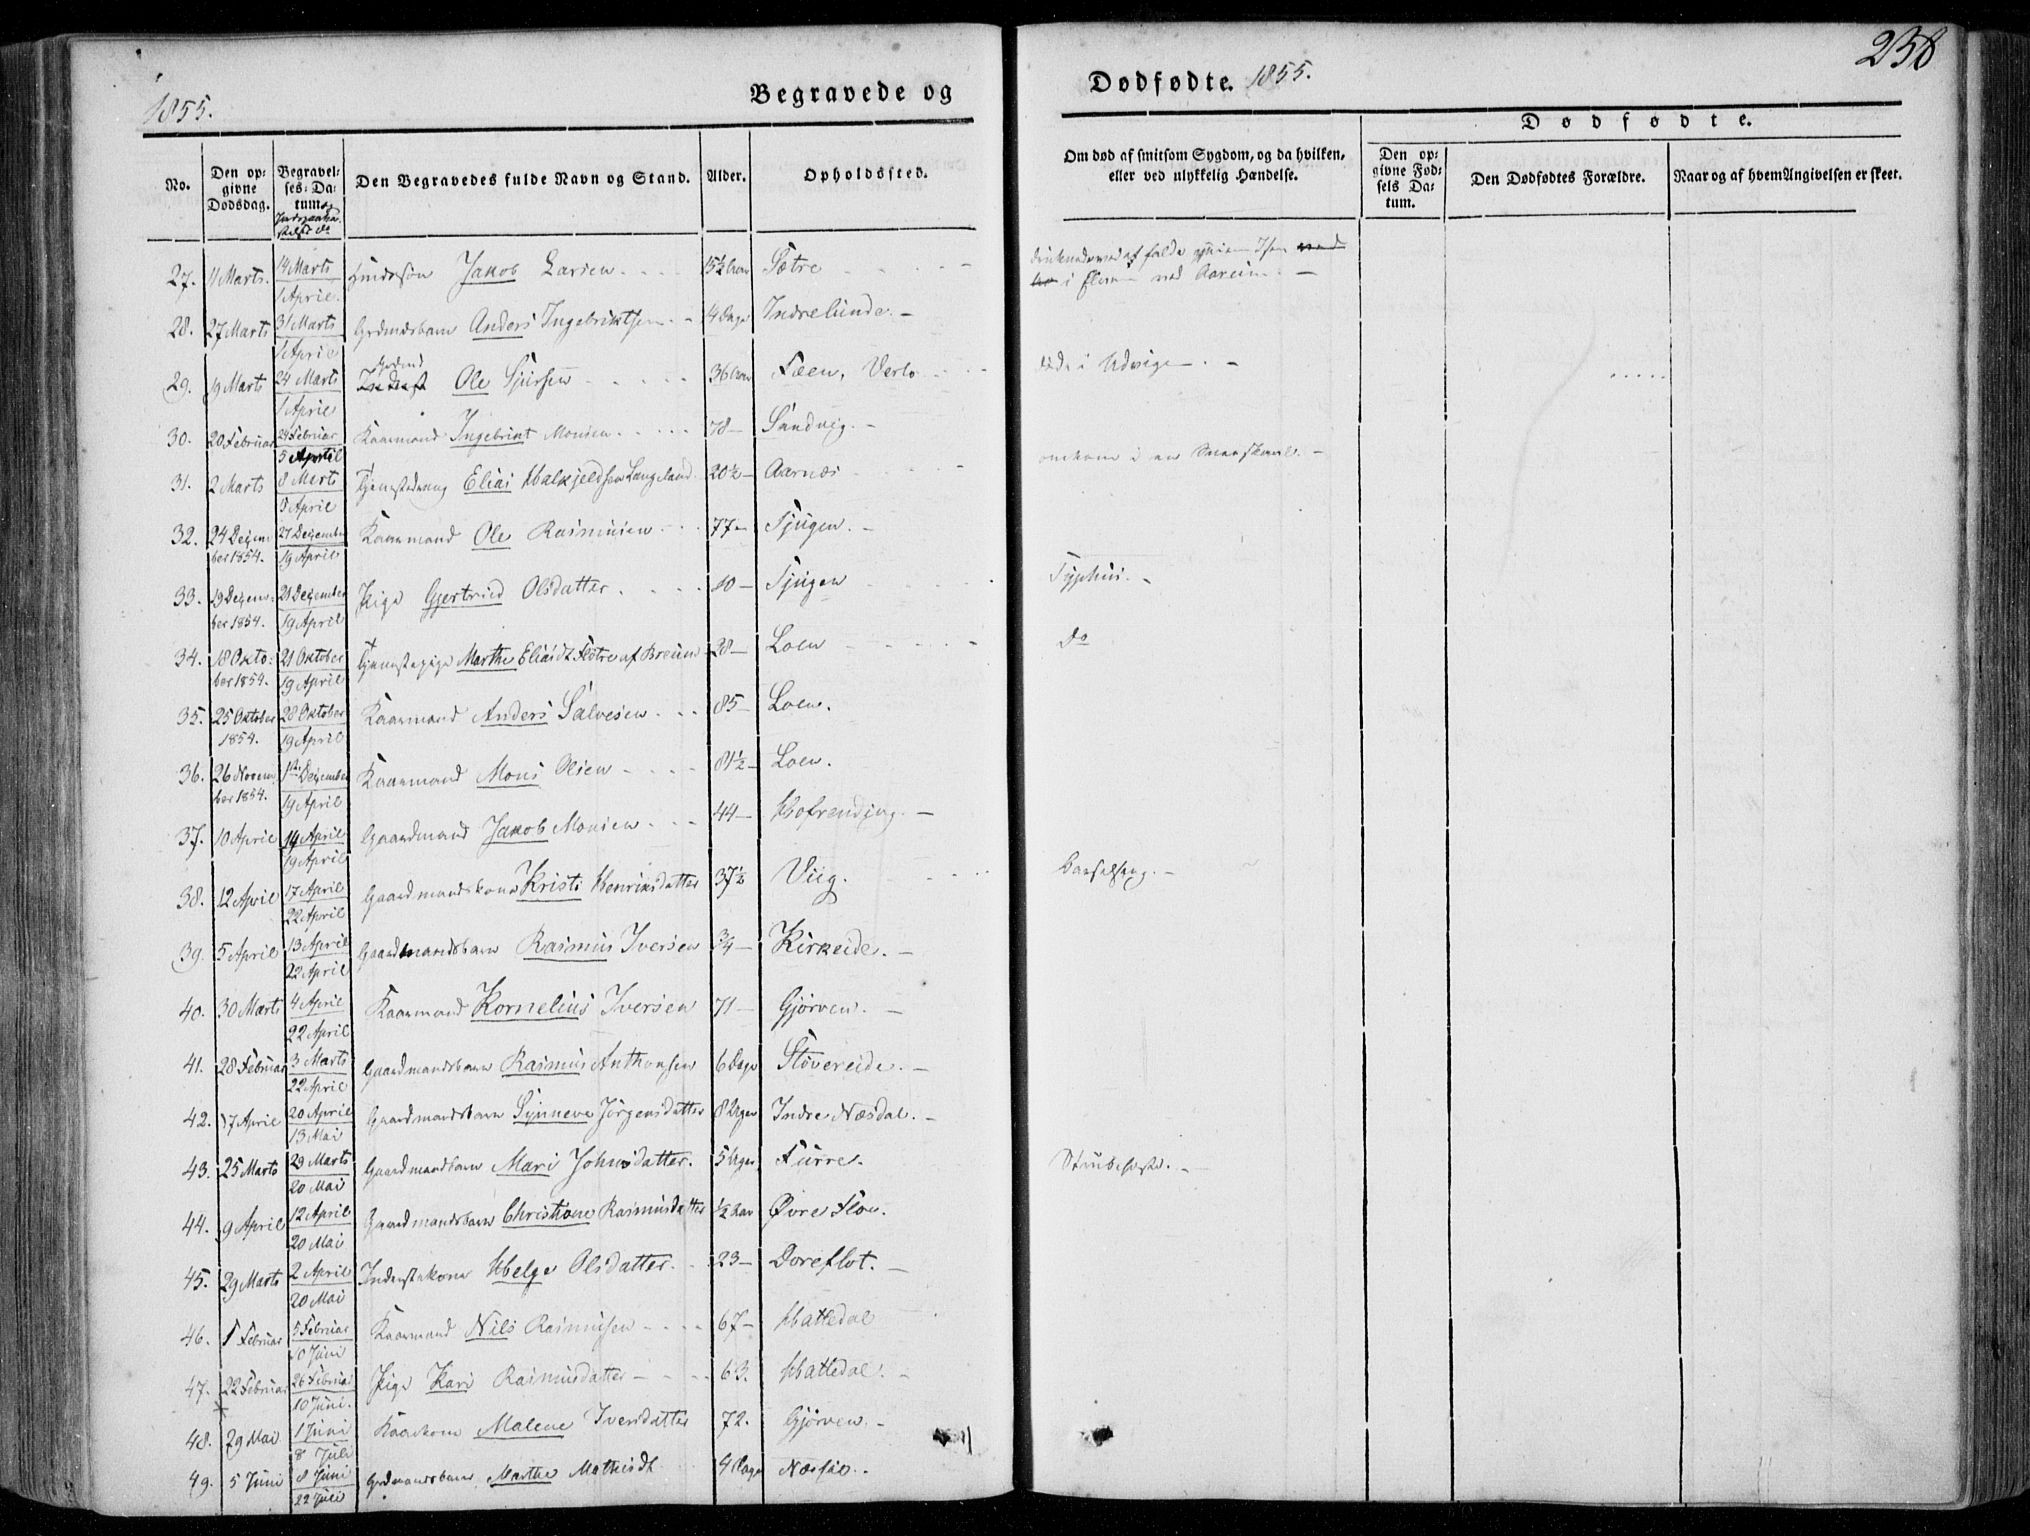 238
1855.
Begravede og
Dødfødte. 1855.
Dødfødte.
No.
Den op-
givne
Dødsdag.
Begravel-
ses-Da-
tum
Den Begravedes fulde Navn og Stand.
Alder.
Opholdssted.
Om død af smitsom Sygdom, og da hvilken,
eller ved ulykkelig Hændelse.
Den op-
givne Fød-
sels Da-
tum.
Den Dødfødtes Forældre.
Naar og af hvem Angivelsen er skeet.
27. 11 Marts. 14 Marts 1 April. Jakob Larsen 15½ Aar Sætre
i Elven ved Aareim.
28. 27 Marts 31 Marts 1 April Grdmdsbarn Anders Ingebriktsen 4 Dage Indrelunde.
29. 19 Marts 24 Marts 1 April Ole Sjursen 36 Aar Fæen, Verlo
døde i Udvigen.
30. 20 Februar 24 Februar 5 April Kaarmand Ingebrigt Monsen 78 Sandvig.
31. 2 Marts 8 Marts 8 April Tjenestedreng Elias Halkjeldsen Langeland 20½ Aarnes
omkom i en Sneeskavl.
32. 24 Dezem-ber 1854. 27 Dezember 19 April Kaarmand Ole Rasmusen 77 Tjugen.
33. 19 Dezem-ber 1854. 21 Dezember 19 April Pige Gjertrud Olsdatter 10 Tjugen
Typhus.
34. 18 Okto-ber 1854. 21 Oktober 19 April Tjenestepige Marthe Eliasdt. Flotre af Breum 28 Loen
Do
35. 25 Oktober 1854. 28 Oktober 19 April Kaarmand Anders Salvesen 85 Loen.
36. 26 Novem-ber 1854. 1ste Dezember 19 April Kaarmand Mons Olsen 81½ Loen.
37. 10 April 14 April 19 April Gaardmand Jakob Monsen 44 Hofrending.
38. 12 April 17 April 22 April Gaardmandskone Kristi Henriksdatter 37½ Viig.
Barselseng.
39. 5 April 13 April 22 April Gaardmandsbarn Rasmus Iversen ¾ Kirkeide.
40. 30 Marts 4 April 22 April Kaarmand Kornelius Iversen 71 Gjørven.
41. 28 Februar 3 Marts 22 April Gaardmandsbarn Rasmus Anthonsen 6 Dage Støvereide.
42. 17 April 20 April 13 Mai Gaardmandsbarn Synneve Jørgensdatter 8 Uger Indre Næsdal.
43. 25 Marts 29 Marts 20 Mai Gaardmandsbarn Mari Johnsdatter. 5 Uger Furre.
Strubehoste.
44. 9 April 12 April 20 Mai Gaardmandsbarn Christiane Rasmusdatter ½ Aar Øvre Floe.
45. 29 Marts 2 April 20 Mai Inderstekone Helge Olsdatter 23 Doreflot.
46. 1 Februar 5 Februar 10 Juni Kaarmand Nils Rasmusen 67 Hattedal
47. 22 Februar 26 Februar 10 Juni. Pige Kari Rasmusdatter 63. Hattedal.
48. 29 Mai 1 Juni 8 Juli Kaarkone Malene Iversdatter 72. Gjørven.
49. 5 Juni 8 Juni 22 Juli Grdmandsbarn Marthe Mathisdt. 4 Dage